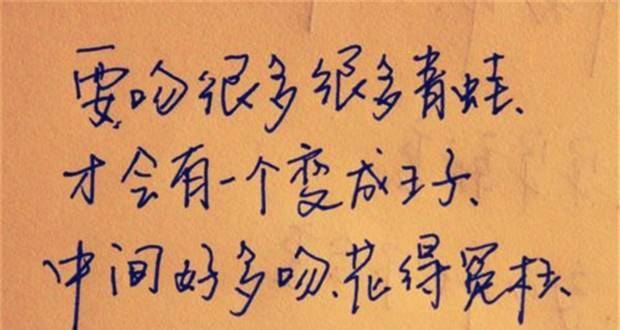 要吻很多很多青蛙、
才会有一个变成王子、
中间好多吻、花得冤枉、